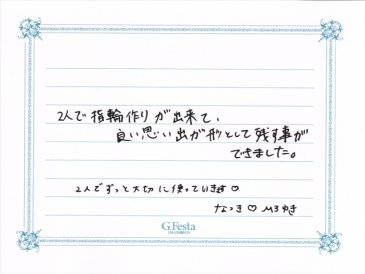 2人で指輪作りが出来て、
良い思い出が形として残す事が
できました。
2人でずっと大切に使っていきます♡
なつき♡ひろゆき
G.Festa